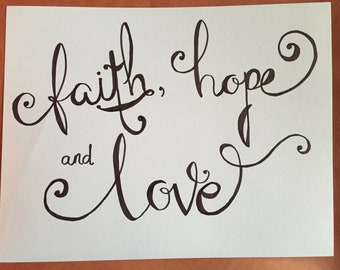 faith, hope
and love